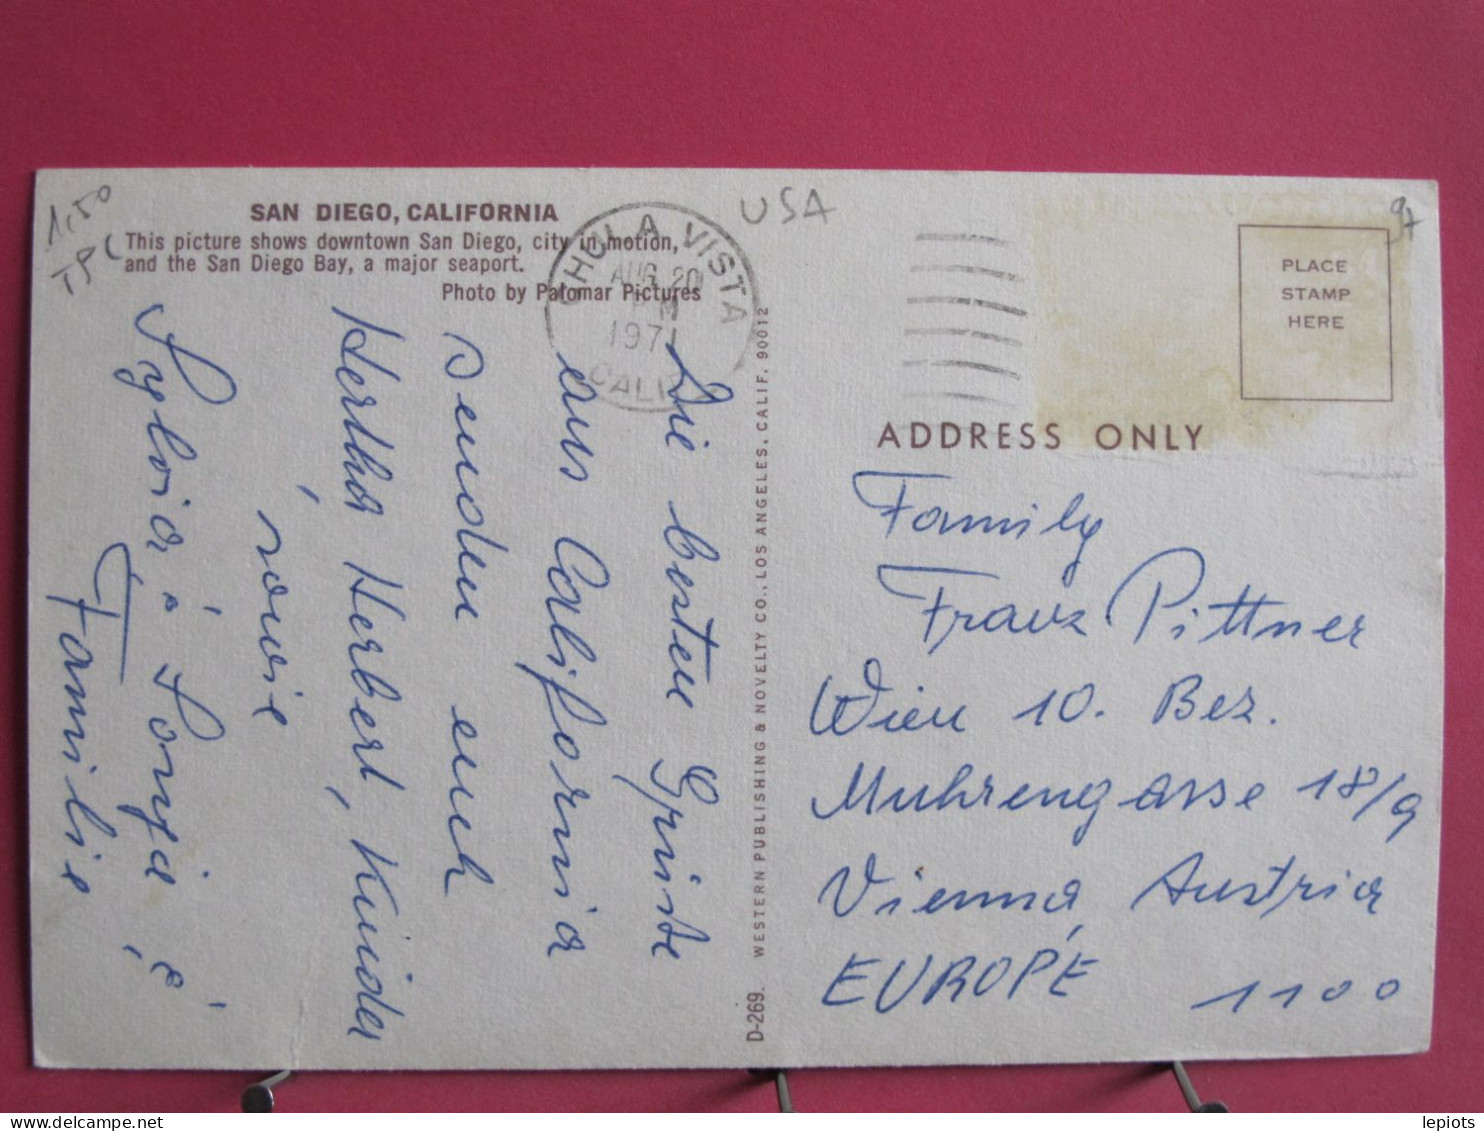 1,50
TPC
SAN DIEGO, CALIFORNIA
This picture shows downtown San Diego, city in motion,
and the San Diego Bay, a major seaport.
Photo by Palomar Pictures
CHULA VISTA
AUG 20
PM
1971
CALIF.
USA
97
PLACE
STAMP
HERE
ADDRESS ONLY
Die besten Grüsse
aus California
senden euch
Hertha Herbert, Kinder
sowie
Sylvia & Sonja &
Familie
D-269. WESTERN PUBLISHING & NOVELTY CO., LOS ANGELES, CALIF. 90012
Family
Franz Pittner
Wien 10. Bez.
Muhrengasse 18/9
Vienna, Austria
EUROPE 1100
lepiots